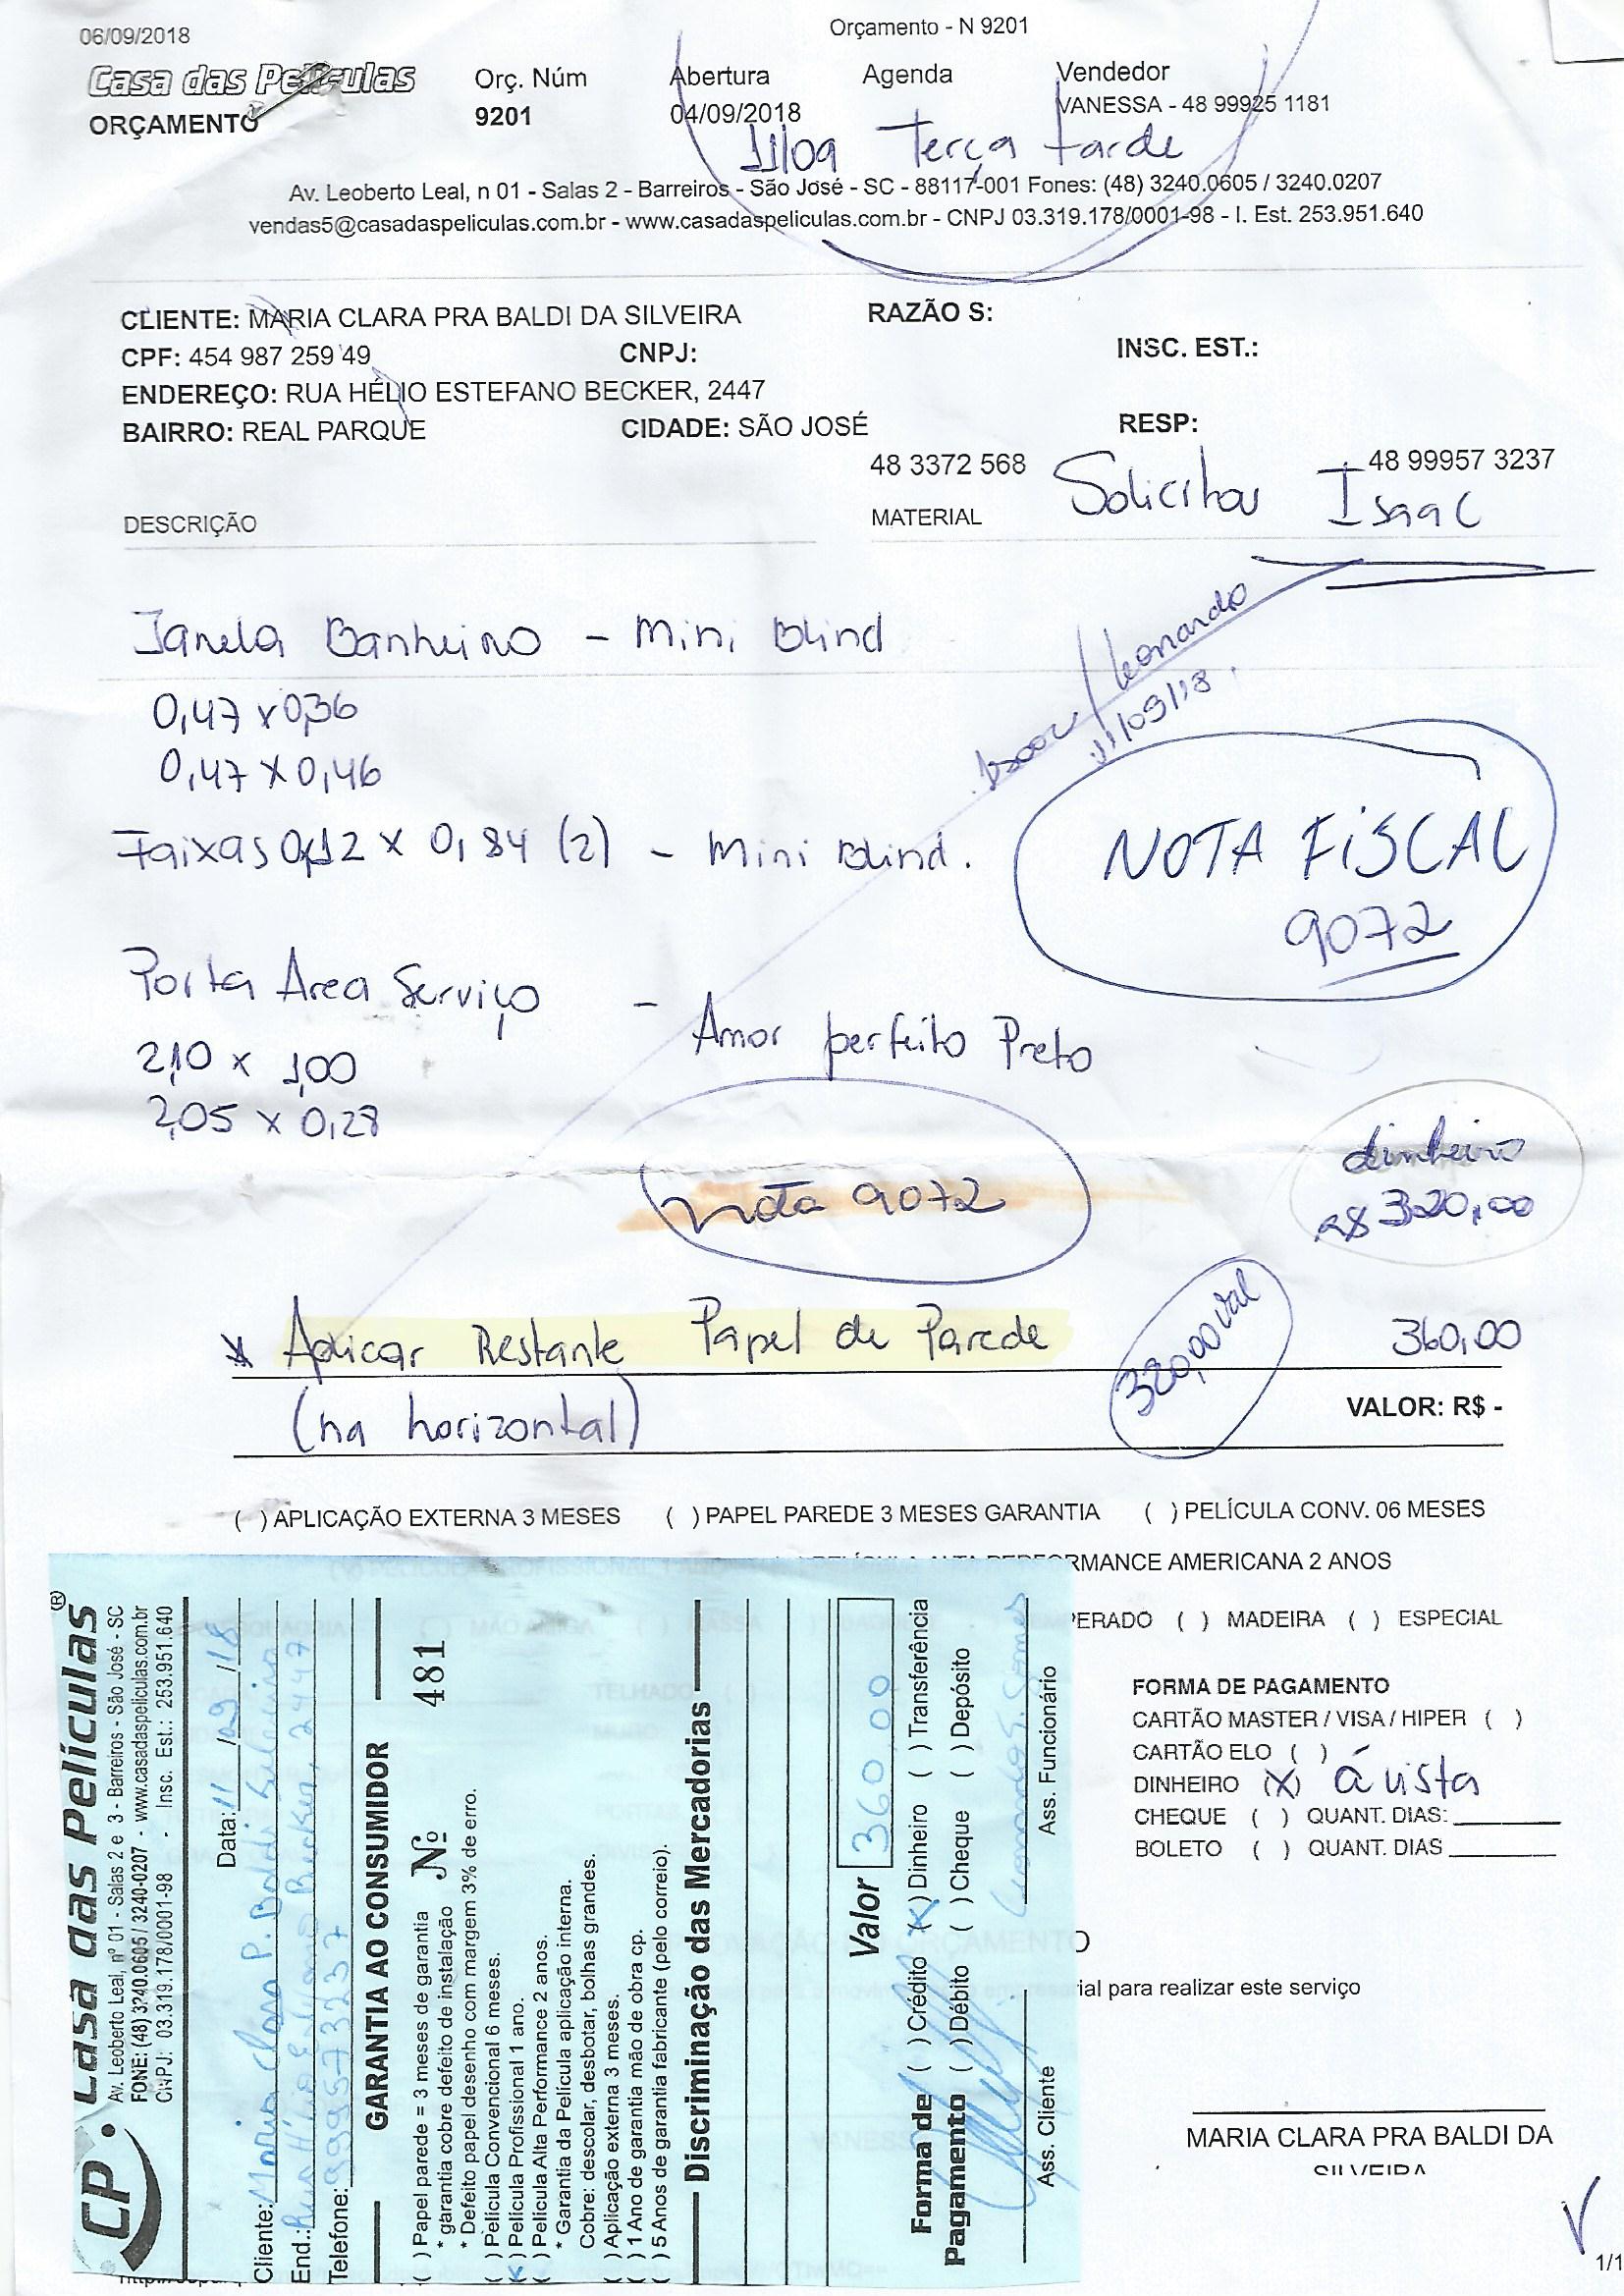 06/09/2018
Orçamento - N 9201
Casa das Películas
ORÇAMENTO
Orç. Núm
9201
Abertura
04/09/2018
Agenda
Vendedor
VANESSA - 48 99925 1181
11/09 Terça tarde
Av. Leoberto Leal, n 01 - Salas 2 - Barreiros - São José - SC - 88117-001 Fones: (48) 3240.0605 / 3240.0207
vendas5@casadaspeliculas.com.br - www.casadaspeliculas.com.br - CNPJ 03.319.178/0001-98 - I. Est. 253.951.640
CLIENTE: MARIA CLARA PRA BALDI DA SILVEIRA
RAZÃO S:
CPF: 454 987 259 49
CNPJ:
INSC. EST.:
ENDEREÇO: RUA HÉLIO ESTEFANO BECKER, 2447
BAIRRO: REAL PARQUE
CIDADE: SÃO JOSÉ
RESP:
48 3372 568
48 99957 3237
Solicitou Isaac
DESCRIÇÃO
MATERIAL
Isaac / Leonardo
11/09/18.
Janela Banheiro - Mini Blind
0,47 x 0,36
0,47 x 0,46
Faixas 0,12 x 0,84 (2) - Mini Blind.
NOTA FISCAL
9072
Porta Area Serviço - Amor perfeito Preto
2,10 x 1,00
2,05 x 0,28
dinheiro
R$ 320,00
nota 9072
* Aplicar Restante Papel de Parede
360,00
(na horizontal)
VALOR: R$ -
( ) APLICAÇÃO EXTERNA 3 MESES ( ) PAPEL PAREDE 3 MESES GARANTIA ( ) PELÍCULA CONV. 06 MESES
RMANCE AMERICANA 2 ANOS
PERADO ( ) MADEIRA ( ) ESPECIAL
FORMA DE PAGAMENTO
CARTÃO MASTER / VISA / HIPER ( )
CARTÃO ELO ( )
DINHEIRO (X) á vista
CHEQUE ( ) QUANT. DIAS:
BOLETO ( ) QUANT. DIAS
ial para realizar este serviço
MARIA CLARA PRA BALDI DA
SILVEIRA
1/1
CP. Casa das Películas ®
Av. Leoberto Leal, nº 01 - Salas 2 e 3 - Barreiros - São José - SC
FONE: (48) 3240.0605 / 3240-0207 - www.casadaspeliculas.com.br
CNPJ: 03.319.178/0001-98 - Insc. Est.: 253.951.640
Data: 11/09/18
Cliente: Maria Clara P. Baldi Silveira
End.: Rua Hélio Estefano Becker, 2447
Telefone: 999573237
GARANTIA AO CONSUMIDOR
( ) Papel parede = 3 meses de garantia Nº 481
* garantia cobre defeito de instalação
* Defeito papel desenho com margem 3% de erro.
( ) Película Convencional 6 meses.
(X) Película Profissional 1 ano.
( ) Película Alta Performance 2 anos.
* Garantia da Película aplicação interna.
Cobre: descolar, desbotar, bolhas grandes.
( ) Aplicação externa 3 meses.
( ) 1 Ano de garantia mão de obra cp.
( ) 5 Anos de garantia fabricante (pelo correio).
Discriminação das Mercadorias
Valor 360 00
Forma de Pagamento
( ) Crédito (X) Dinheiro ( ) Transferência
( ) Débito ( ) Cheque ( ) Depósito
Ass. Cliente
Ass. Funcionário